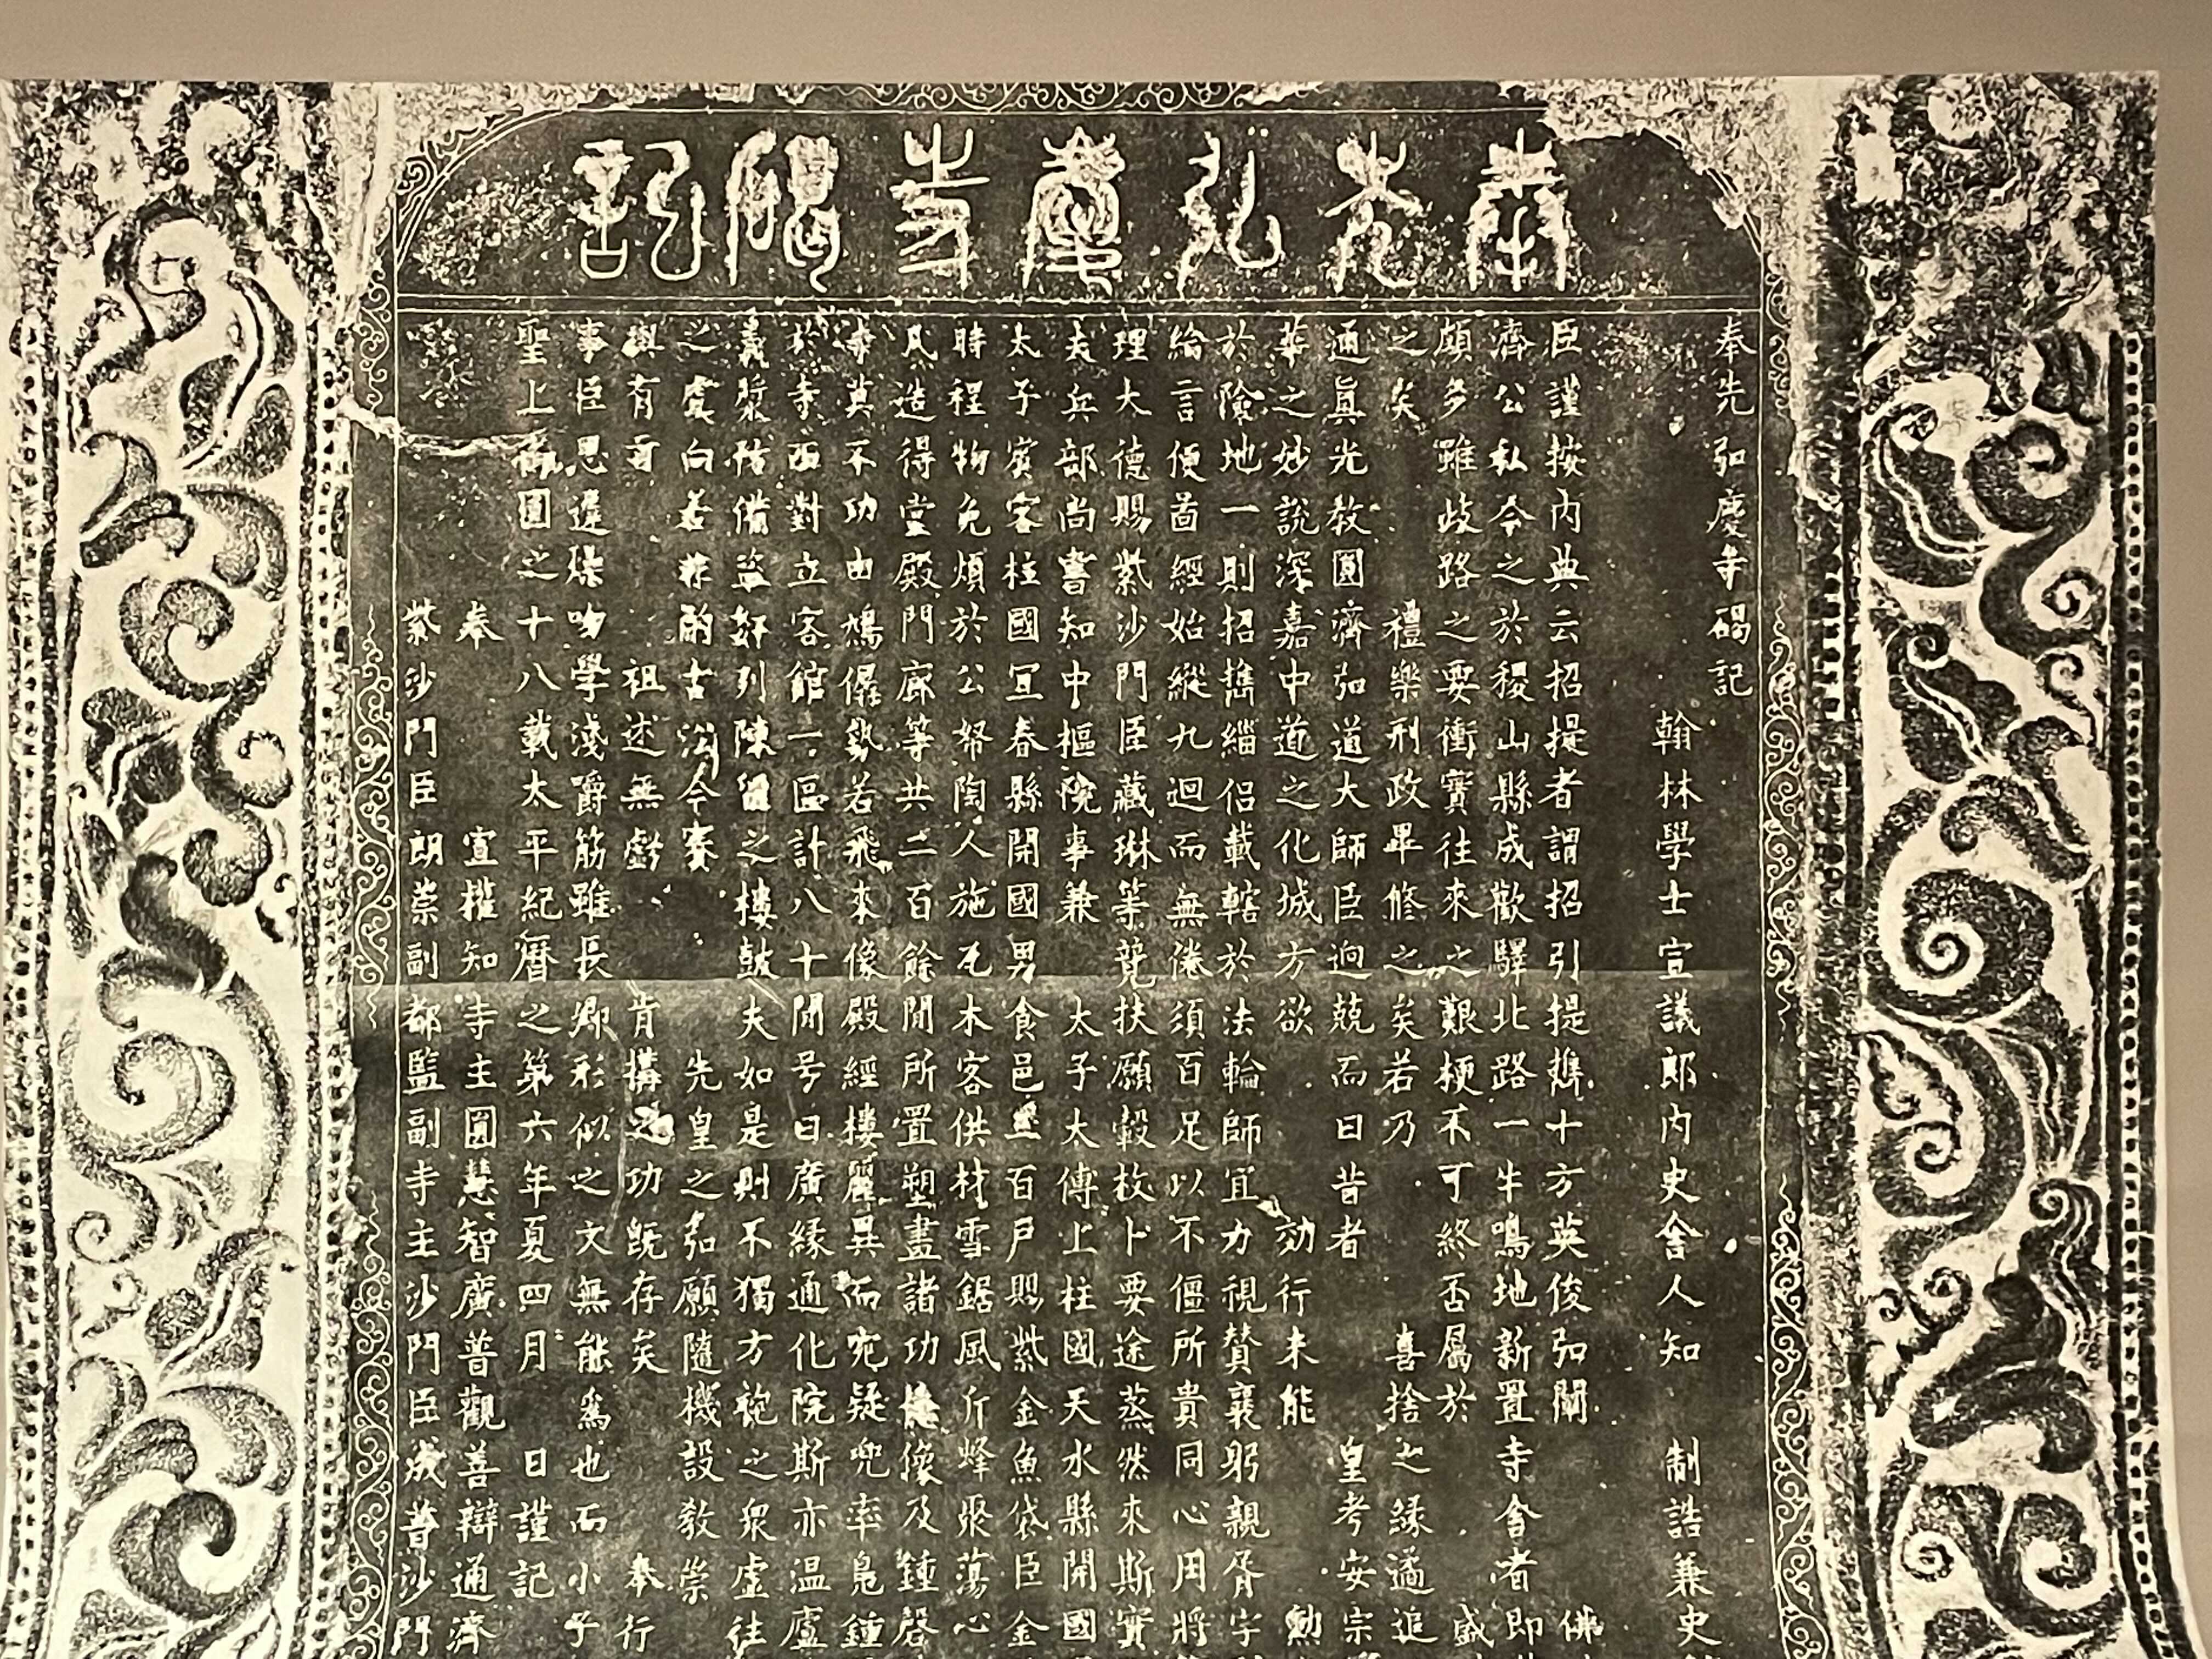 奉先弘慶寺碣記
奉先弘慶寺碣記
翰林學士宣議郎內史舍人知 制誥兼史
臣謹按內典云招提者謂招引提擕十方英俊弘闡 佛
濟公私今之於稷山縣成歡驛北路一牛鳴地新置寺舍者即
頗多雖歧路之要衝實往來之艱梗不可終否屬於 盛
之矣 禮樂刑政畢修之矣若乃 喜捨之緣遹追
通眞光教圓濟弘道大師臣逈兢而曰昔者 皇考安宗
華之妙說深嘉中道之化城方欲 効行未能 勲
於險地一則招擕緇侶載轄於法輪師宜力視賛襄躬親胥宇
給言便啚經始縱九迴而無倦須百足以不僵所貴同心用將
理大德賜紫沙門臣藏琳等競扶願轂枚卜要途蒸然來斯實
夫兵部尚書知中樞院事兼 太子太傅上柱國天水縣開國
太子賓客柱國宜春縣開國男食邑三百戶賜紫金魚袋臣金
時程物免煩於公帑陶人施瓦木客供材雪鋸風斤蜂聚蕩心
凡造得堂殿門廊等共二百餘閒所置塑畫諸功德像及鍾磬
幸莫不功由鳩僝勢若飛來像殿經樓麗異而宛疑兜率鳧鍾
於寺西對立客館一區計八十閒号曰廣緣通化院斯亦温廬
義漿帖備盜奸列陳留之樓鼓夫如是則不獨方袍之衆虛往
之處向若非酌古㳂今寮 先皇之弘願隨機設敎崇
祖述無虧 肯搆之功旣存矣 奉行
事臣思遲燥吻學淺嚼筋雖長卿形似之文無能爲也而小子
聖上御圖之十八載太平紀曆之第六年夏四月 日謹記
奉 宣權知寺主圓慧智廣普觀善辯通濟
紫沙門臣朗崇副都監副寺主沙門臣成普沙門